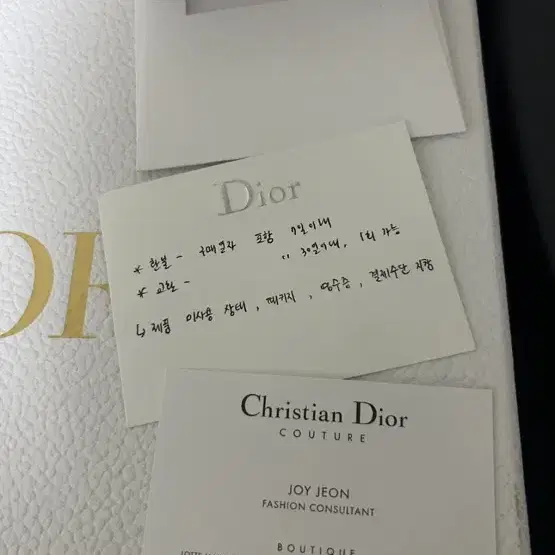 Dior
* 환불 - 구매일자 포함 7일이내
* 교환 - 〃 30일이내, 1회 가능
↳ 제품 미사용 상태, 패키지, 영수증, 결제수단 지참
Christian Dior
COUTURE
JOY JEON
FASHION CONSULTANT
BOUTIQUE